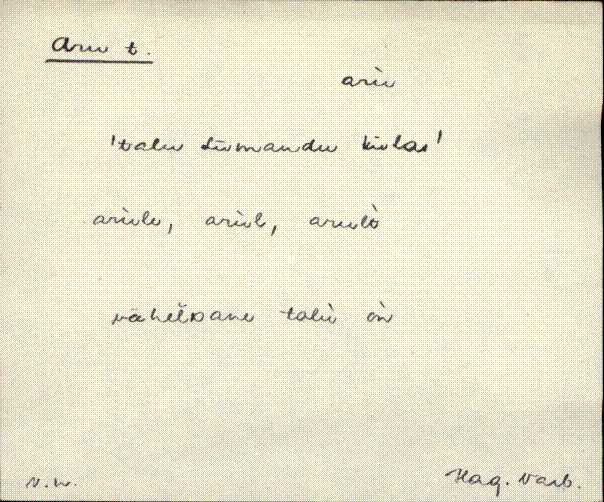 Aru t.
arù
'talu Livmandu külas'
arule, arul, arulò
vähelDane talù òn
V.W.
Hag. Varb.